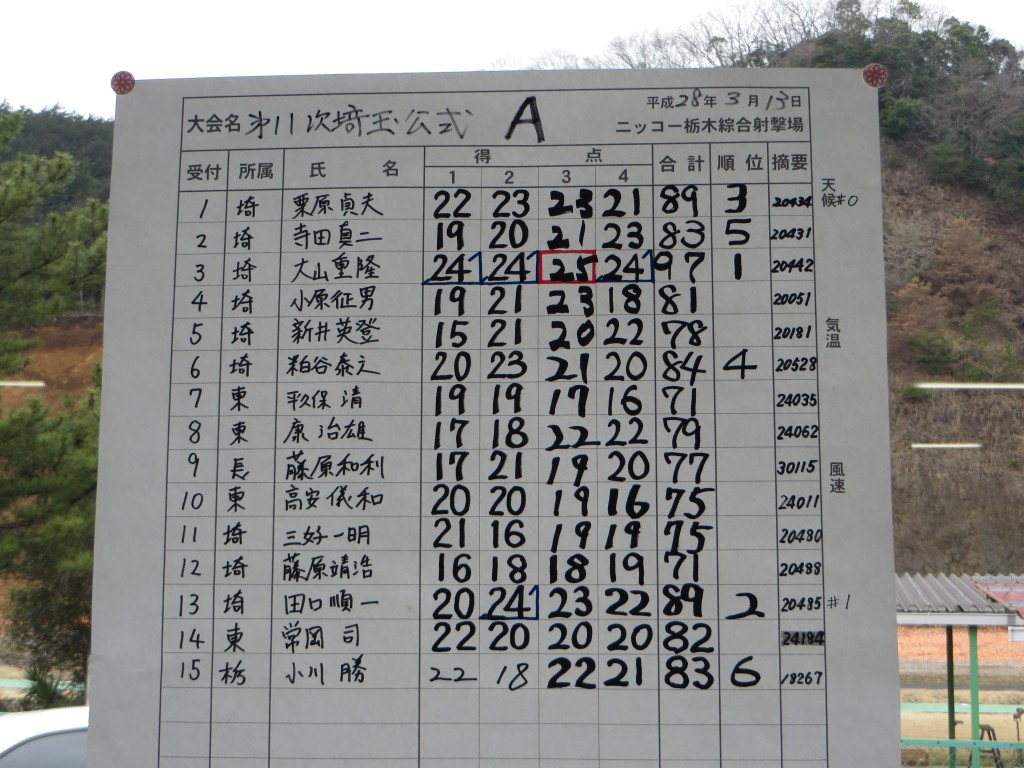 平成28年3月13日
大会名 オ11次埼玉公式 A ニッコー栃木綜合射撃場
受付 所属 氏名 得点 合計 順位 摘要
1 2 3 4
天候#0
1 埼 栗原貞夫 22 23 23 21 89 3 20434
2 埼 寺田真二 19 20 21 23 83 5 20431
3 埼 大山重隆 24 24 25 24 97 1 20442
4 埼 小原征男 19 21 23 18 81 20051
5 埼 新井英登 15 21 20 22 78 20181
気温
6 埼 粕谷泰之 20 23 21 20 84 4 20528
7 東 保 清 19 19 17 16 71 24035
8 東 康 治雄 17 18 22 22 79 24062
9 長 藤原和利 17 21 19 20 77 30115
風速
10 東 高安儀和 20 20 19 16 75 24011
11 埼 三好一明 21 16 19 19 75 20480
12 埼 藤原靖浩 16 18 18 19 71 20488
13 埼 田口順一 20 24 23 22 89 2 20485 #1
14 東 常岡 司 22 20 20 20 82 24184
15 栃 小川 勝 22 18 22 21 83 6 18267